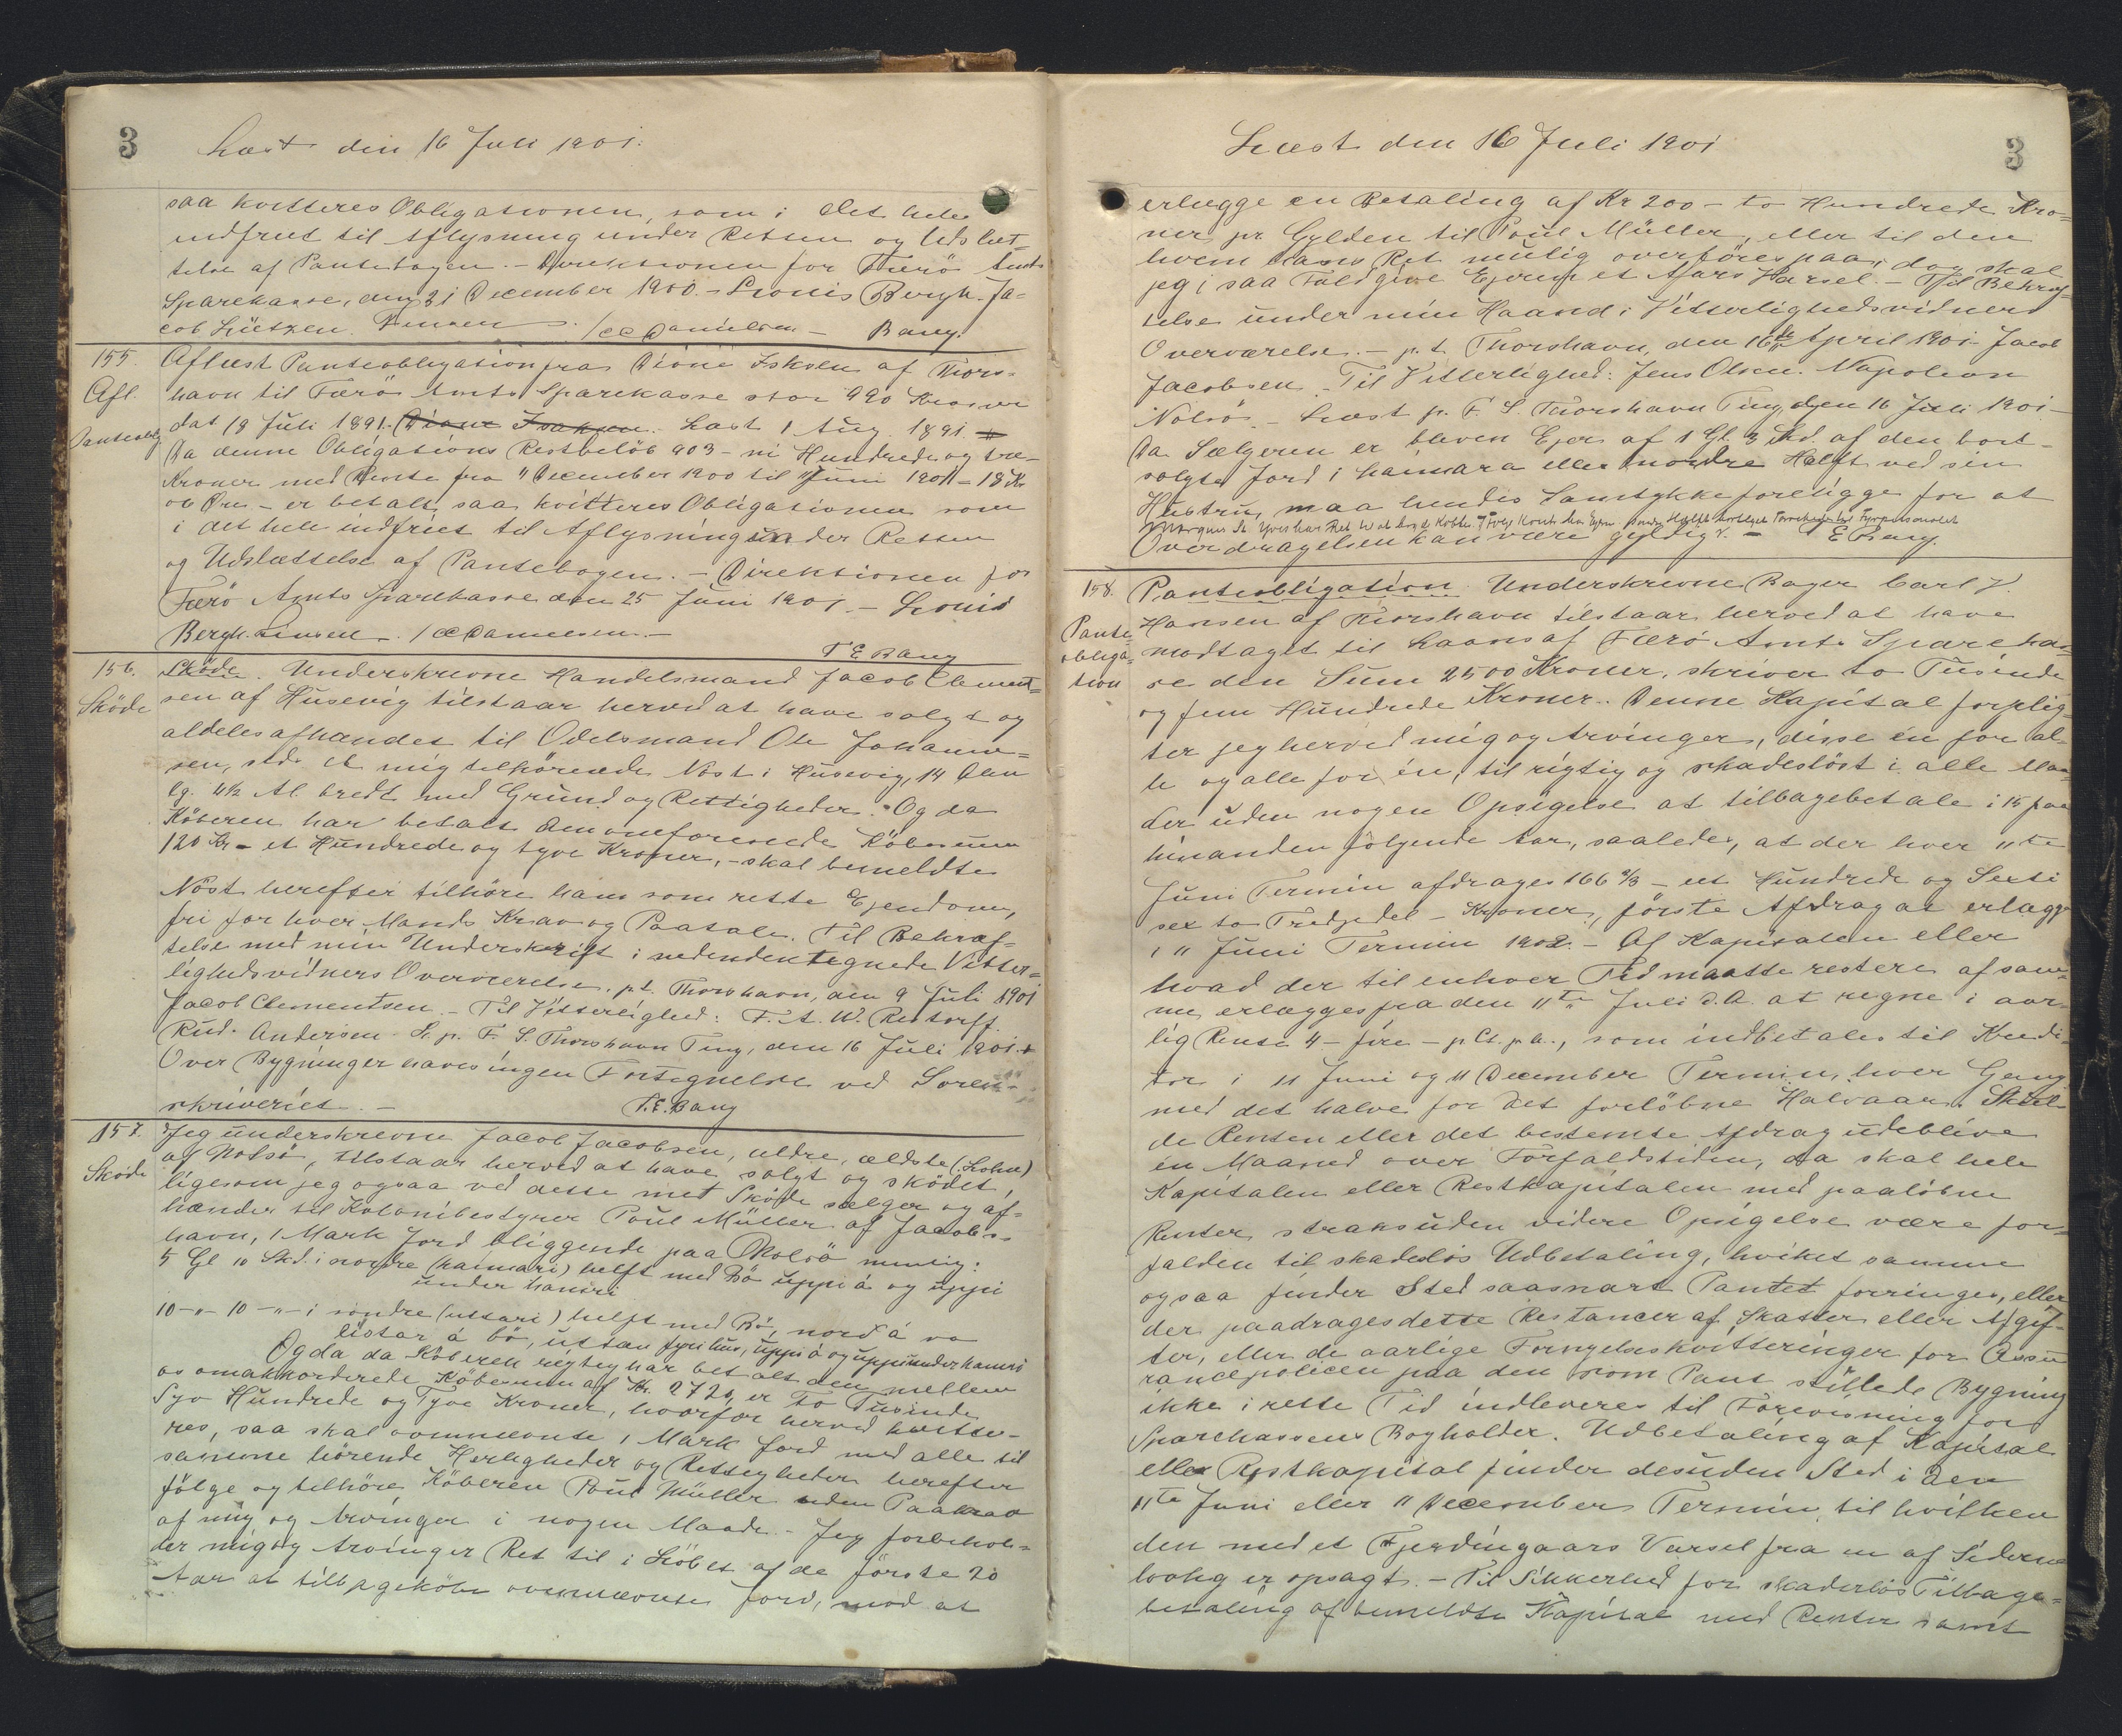 3
Læst den 16 Juli 1901.
saa kvitteres Obligationen, som i det hele
indfriet til Aflysning under Retten og Udslet-
telse af Pantebogen. - Direktionen for Færö Amts
Sparekasse, den 21 December 1900. - Louis Bergh. Ja-
cob Lützen. /CC Danielsen - Bang.
155. Aflæst Panteobligation fra Dione Isksen af Thors-
Afl. havn til Færö Amts Sparekasse stor 990 Kroner
Panteoblg dat 18 Juli 1891. Læst 1 Aug. 1891
Da denne Obligations Restbelöb 903 - ni Hundrede og tre-
Kroner med Rente fra 11 December 1900 til 11 Juni 1901 - 18 Kr
06 Øre - er betalt, saa kvitteres Obligationen som
i det hele indfriet til Aflysning under Retten
og Udslættelse af Pantebogen. - Direktionen for
Færö Amts Sparekasse den 25 Juni 1901. - Louis
Bergh. Jensen. /CC Danielsen. -
T E Bang
156. Sköde. Underskrevne Handelsmand Jacob Clement-
Sköde sen af Husevig tilstaar herved at have solgt og
aldeles afhændet til Odelsmand Ole Johanne-
sen, stds et mig tilhörende Nöst i Husevig, 14 Alen
lg. 4½ Al. bredt med Grund og Rettigheder. Og da
Köberen har betalt den omforenede Köbesum
120 Kr - et Hundrede og tyve Kroner, - skal bemeldte
Nöst herefter tilhöre ham som rette Ejendom,
fri for hver Mands Krav og Paatale. Til Bekræf-
telse med min Underskrift i nedenden tegnede Vitter-
lighedsvidners Overværelse. p.t. Thorshavn, den 9 Juli 1901
Jacob Clementsen. - Til Vitterlighed: F. A. W. Restorff.
Rud. Andersen. L. p. F. S. Thorshavn Ting, den 16 Juli 1901.
Over Bygninger haves ingen Fortegnelse ved Soren-
skriveriet. - T.E. Bang
157. Jeg underskrevne Jacob Jacobsen, ældre, ældste (Lohn)
Sköde af Nolsö, tilstaar herved at have solgt og sködet,
ligesom jeg ogsaa ved dette mit Sköde sælger og af-
hænder til Kolonibestyrer Poul Müller af Jacobs-
havn, 1 Mark Jord bliggende paa Nolsö nemlig:
5 Gl 10 Skd. i nordre (haimari) helft med Bö uppi á og uppi
under hamri
10 -"- 10 -"- i söndre (uttari) helft med Bö, nord á va
listar á bö, ustan fyri hus, uppi á og uppi under hamri
Og da da Köberen rigtig har betalt den mellem
os omakkorderede Köbesum af Kr. 2720, er To Tusinde
Syv Hundrede og Tyve Kroner, hvorfor herved kvitte-
res, saa skal ovennævnte 1 Mark Jord med alle til
samme hörende Herligheder og Rettigheder herefter
fölge og tilhöre Köberen Poul Müller uden Paakrav
af mig og Arvinger i nogen Maade. - Jeg forbehol-
der mig og Arvinger Ret til i Löbet af de förste 20
Aar at tilbageköbe ovennævnte Jord, mod at
Læst den 16 Juli 1901
3
erlægge en Betaling af Kr 200 - to Hundrede Kro-
ner pr. Gylden til Poul Müller, eller til den
hvem hans Ret mulig overföres paa, dog skal
jeg i saa Fald give Ejeren et Aars Varsel. - Til Bekræf-
telse under min Haand i Vitterlighedsvidners
Overværelse. - p.t. Thorshavn, den 16de April 1901. Jacob
Jacobsen. Til Vitterlighed: Jens Olsen. Napoleon
Nolsö. - Læst p. F. S. Thorshavn Ting, den 16 Juli 1901 -
Da Sælgeren er bleven Ejer af 1 Gl. 3 Skd. af den bort-
solgte Jord i haimara eller nordre Helft ved sin
Hustru, maa hendes Samtykke foreligge for at
Overdragelsen kan være gyldig. - T E Bang.
158. Panteobligation. Underskrevne Bager Carl V.
Pante- Hansen af Thorshavn tilstaar herved at have
obliga- modtaget til Laans af Færö Amts Spareka-
tion se den Sum 2500 Kroner, skriver to Tusinde
og fem Hundrede Kroner. Denne Kapital forplig-
ter jeg herved mig og Arvinger, disse én for al-
le og alle for én, til rigtig og skadeslöst i alle Maa-
der uden nogen Opsigelse at tilbagebetale i 15 paa
hinanden fölgende Aar, saaledes, at der hver 11te
Juni Termin afdrages 166⅔ - et Hundrede og Sexti
sex to Tredjedel - Kroner, förste Afdrag at erlægge
i 11 Juni Termin 1902. - Af Kapitalen eller
hvad der til enhver Tid maatte restere af sam-
me, erlægges fra den 11te Juli d.A. at regne i aar-
lig Rente 4 - fire - p.Ct. p.a., som indbetales til Kredi-
tor i 11 Juni og 11 December Termin, hver Gang
med det halve for det forlöbne Halvaar. Skul-
de Renten eller det bestemte Afdrag udeblive
én Maaned over Forfaldstiden, da skal hele
Kapitalen eller Restkapitalen med paalöbne
Renter straks uden videre Opsigelse være for-
falden til skadeslös Udbetaling, hvilket samme
ogsaa finder Sted saasnart Pantet forringes, eller
der paadrages dette Restancer af Skatter eller Afgif-
ter, eller de aarlige Fornyelseskvitteringer for Assu-
rancepolicen paa den som Pant stillede Bygning
ikke i rette Tid indleveres til Forevisning for
Sparekassens Bogholder. Udbetaling af Kapital
eller Restkapital finder desuden Sted i den
11te Juni eller 11 December Termin, til hvilken
den med et Fjerdingaars Varsel fra en af Siderne
lovlig er opsagt. - Til Sikkerhed for skadeslös Tilbage-
betaling af bemeldte Kapital med Renter samt